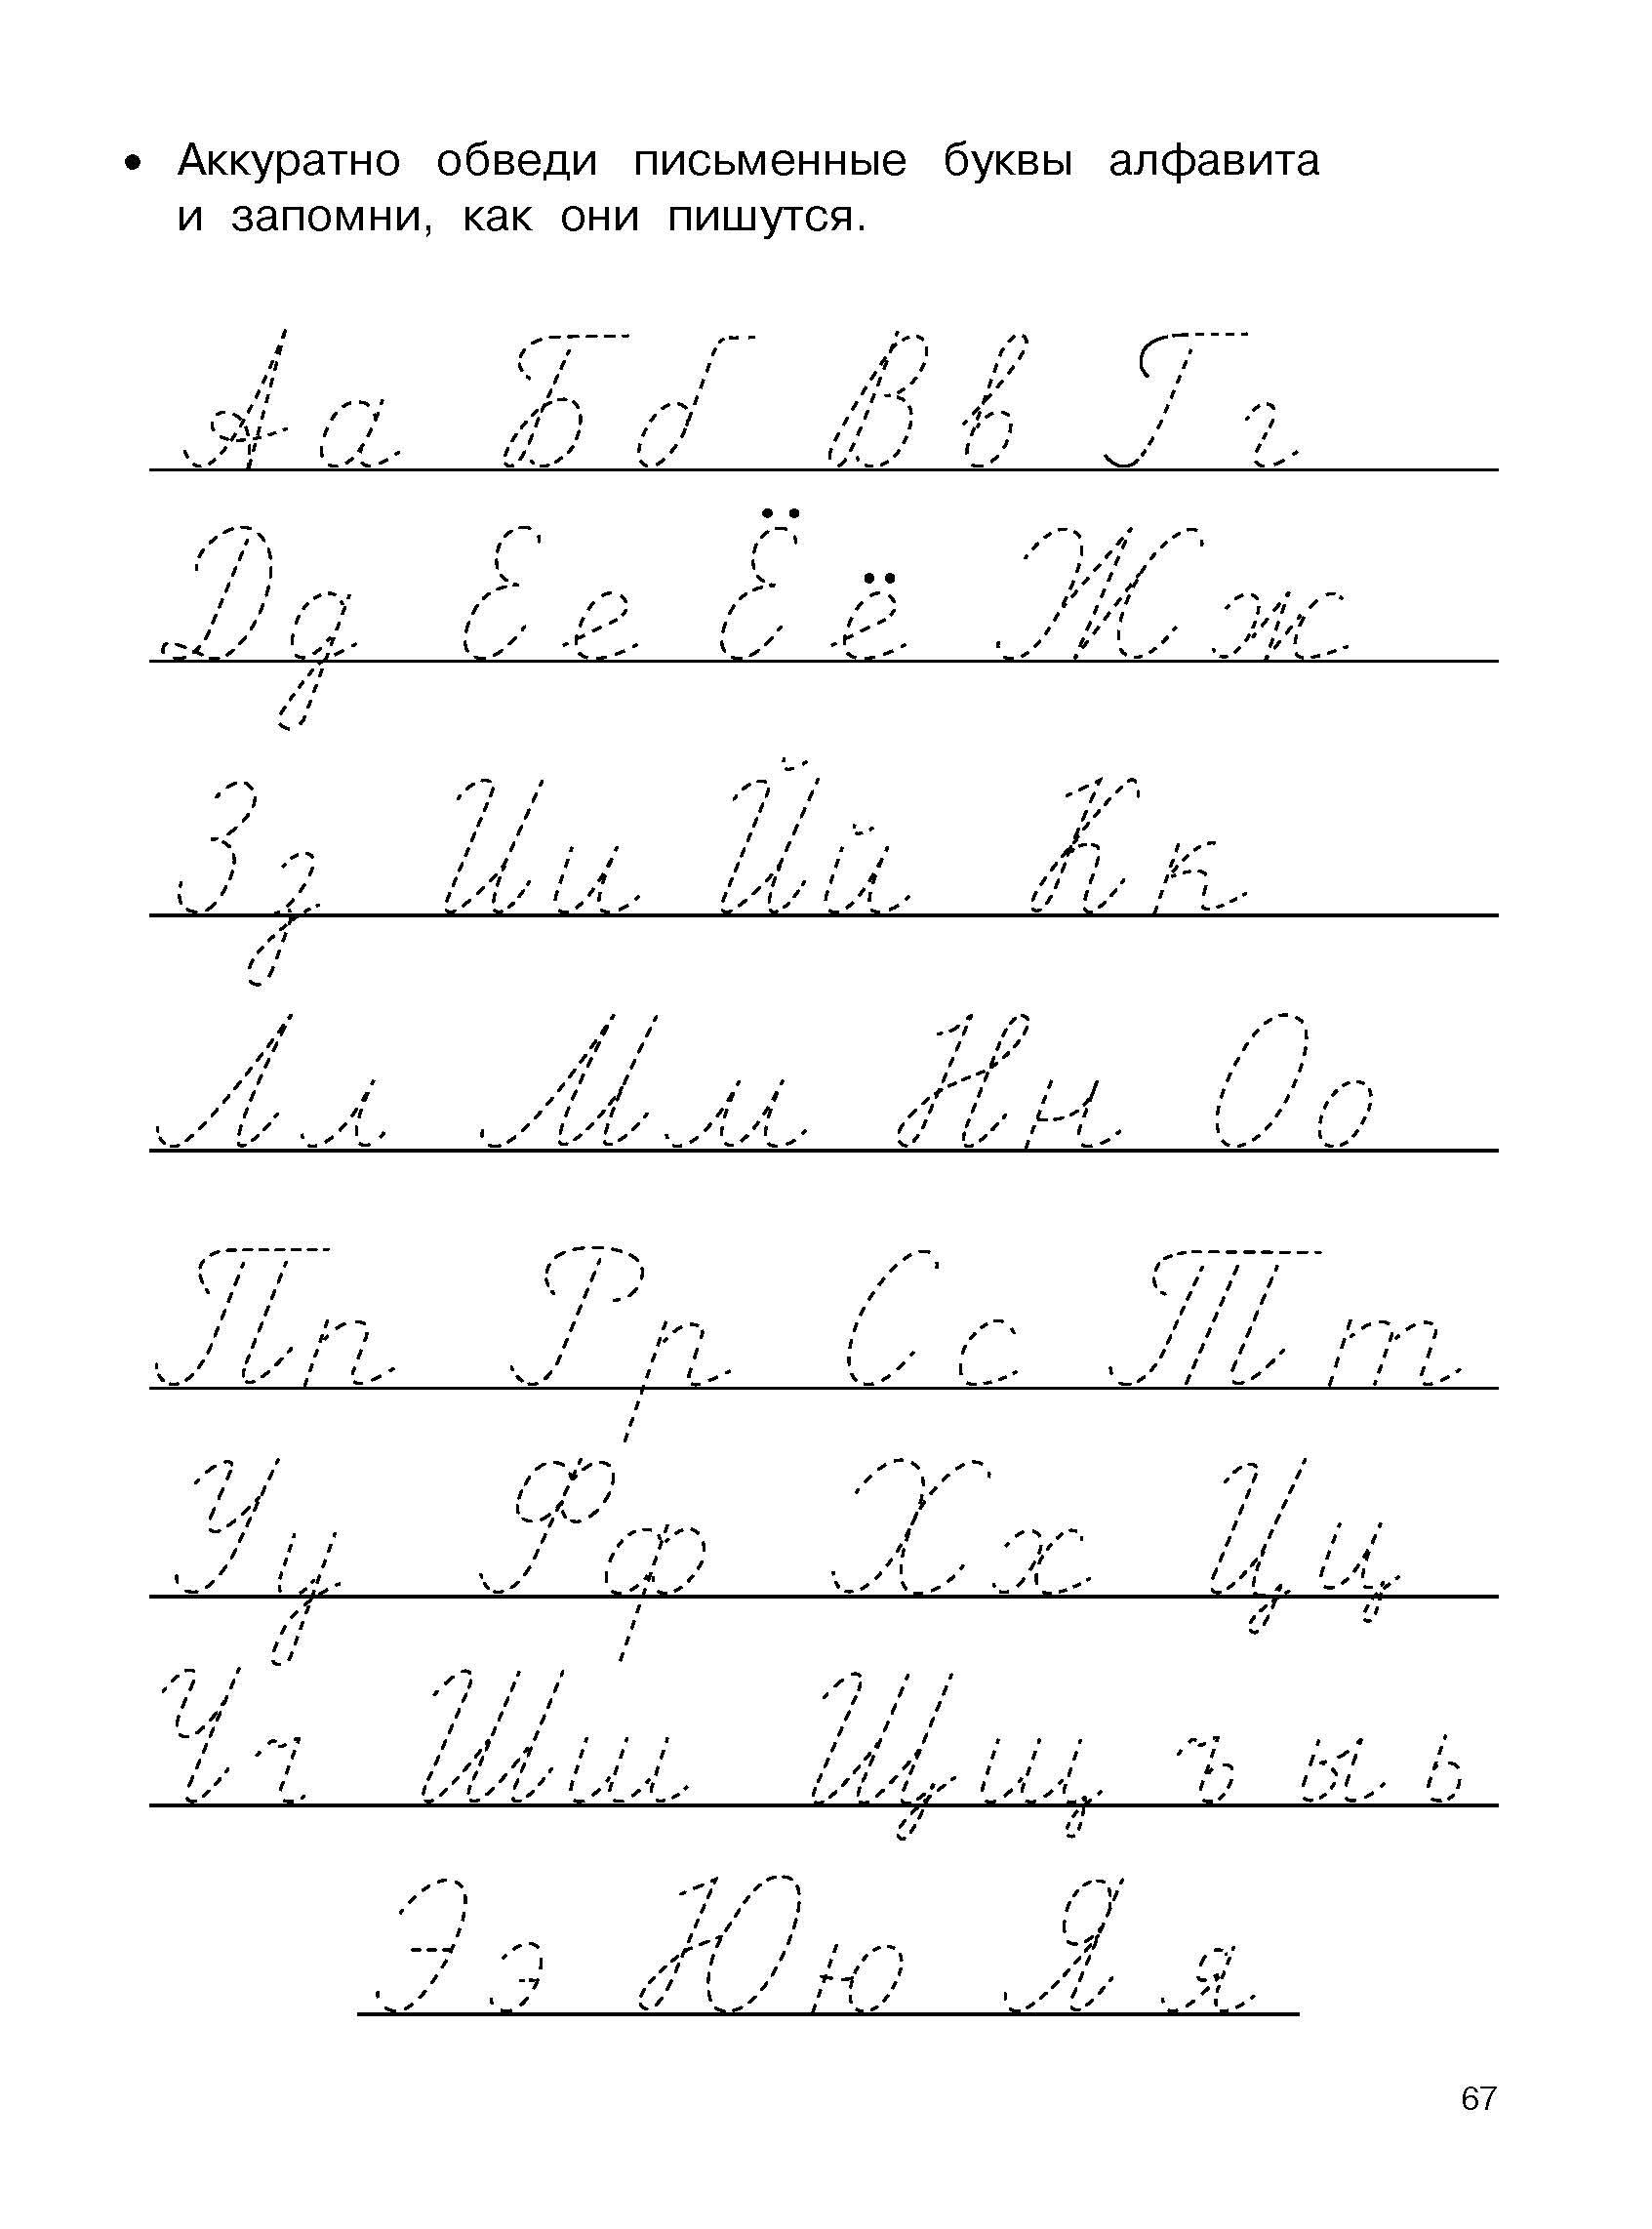 • Аккуратно обведи письменные буквы алфавита
и запомни, как они пишутся.
Аа Бб Вв Гг
Дд Ее Ёё Жж
Зз Ии Йй Кк
Лл Мм Нн Оо
Пп Рр Сс Тт
Уу Фф Хх Цц
Чч Шш Щщ ъ ы ь
Ээ Юю Яя
67